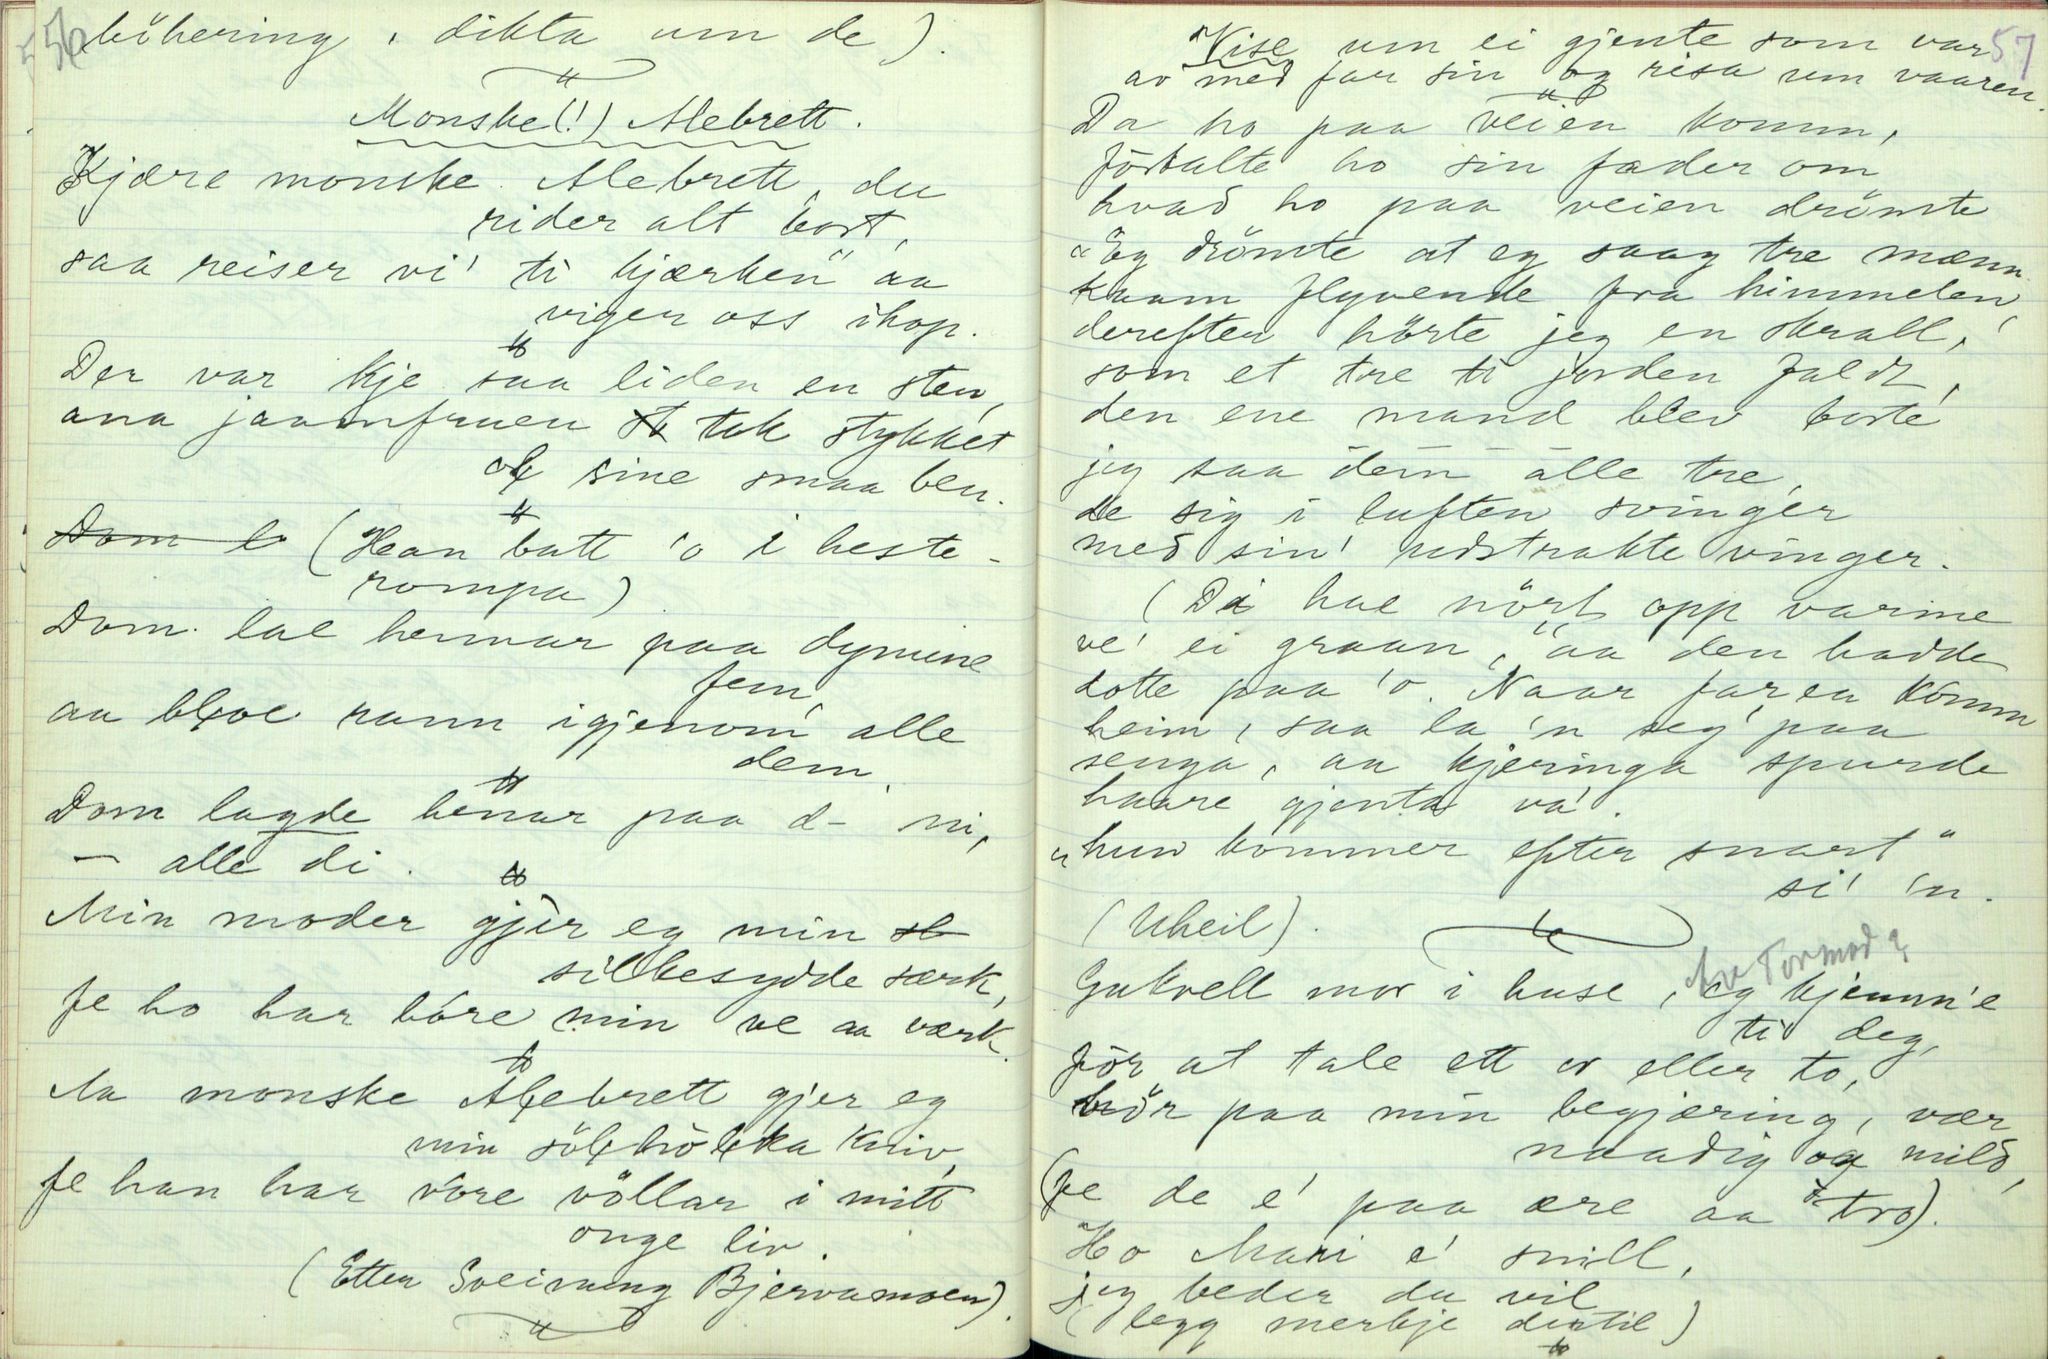 56
böhering, dikta um de).
Monske(!) Alebrett.
Kjære monske Alebrett, du
rider alt bort,
saa reiser vi' ti kjærken" aa
viger oss ihop.
Der var kje saa liden en sten,
ana jaamfruen tok stykket
af sine smaa ben.
(Han batt 'o i heste-
rompa)
Dom lae hennar paa dynune
fem,
aa bloe rann igjenom alle
dem
Dom lagde hennar paa d- ni,
- alle di.
Min moder gjer eg min
silkesydde særk,
fe ho har bore min ve aa værk.
Aa monske Alebrett gjer eg
min sölhölka kniv,
fe han har vore völlar i mitt
onge liv.
(Etter Sveinung Bjervamoen).
57
Vise um ei gjente som var
av med far sin og reisa um vaaren.
Da ho paa veien komm,
förtalte ho sin fader om
hvad ho paa veien drömte
"Eg drömte at eg saag tre mænn
kaam flyvende fra himmelen,
derefter hörte jeg en skrall,
som et tre ti jorden faldt,
den ene mand blev borte
jeg saa dem alle tre,
de sig i luften svinger
med sin' udstrakte vinger.
(Di hae nört opp varme
ve' ei graan, aa den hadde
dotte paa 'o. Naar faren komm
heim, saa la 'n seg paa
senga, aa kjeringa spurde
haare gjenta va'.
"hun kommer efter snart"
si' 'n.
(Uheil).
Av Tormod?
Gukvell mor i huse, eg kjemm'e
ti deg,
för at tale ett or eller to,
hör paa min begjæring, vær
naadig og mild,
(fe de e' paa ære aa tro).
Ho Mari e' snill,
jeg beder du vil
(legg merkje dertil)